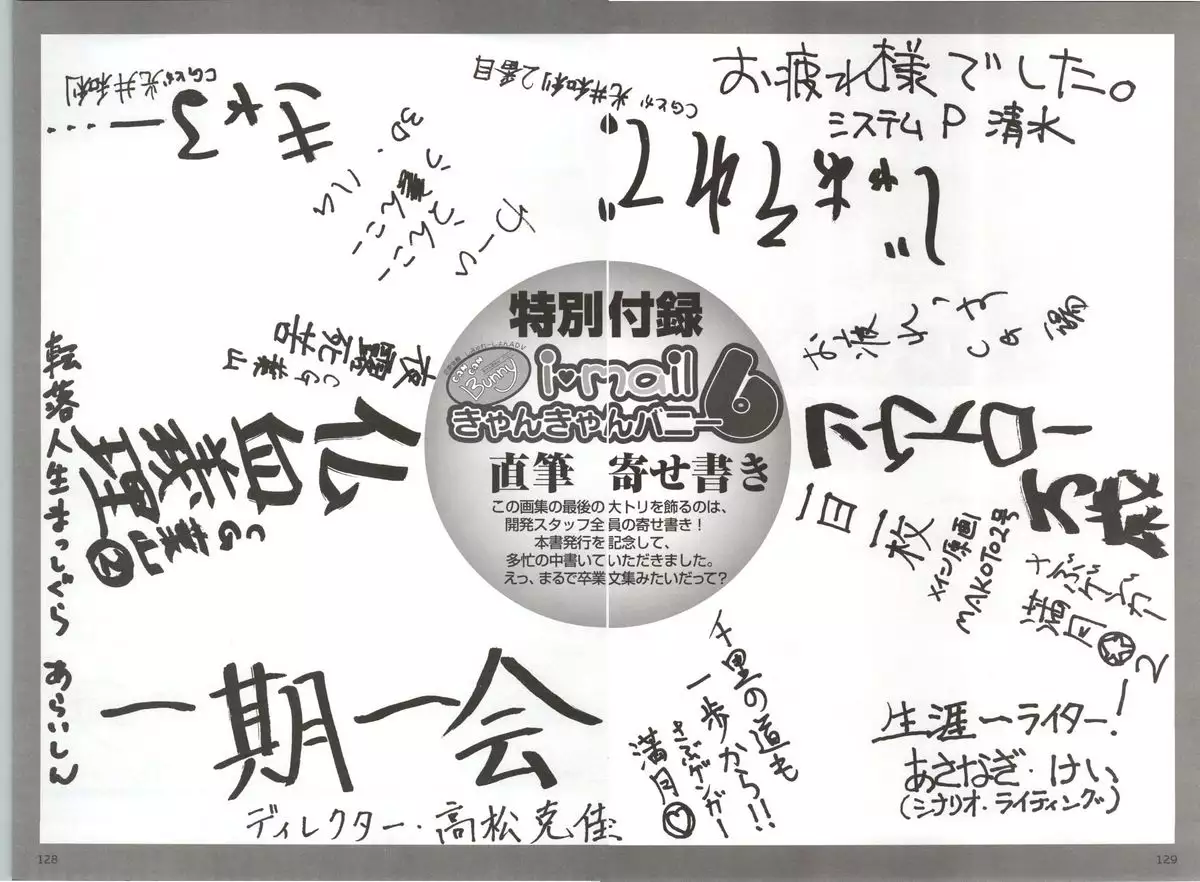 お疲れ様でした。
システムP 清水
CGとか 光井和利
きゃろ
CGとか 光井和利2番目
3D.
わーい
特別付録
CAN CAN Bunny
i♥mail
きゃんきゃんバニー6
直筆 寄せ書き
この画集の最後の大トリを飾るのは、
開発スタッフ全員の寄せ書き!
本書発行を記念して、
多忙の中書いていただきました。
えっ、まるで卒業文集みたいだって?
お疲れっす
CG
夜露死苦
CG 葉山
仏血義理
CG 葉山②
転落人生まっしぐら あらいしん
アウトロー
万歳
一日一枚
メイン原画
MAKOTO2号
さぶゲンガー
満月 2
千里の道も
一歩から!!
さぶゲンガー
満月♡
生涯一ライター!
あさなぎ・けい
(シナリオ・ライティング)
一期一会
ディレクター・高松克佳
128
129